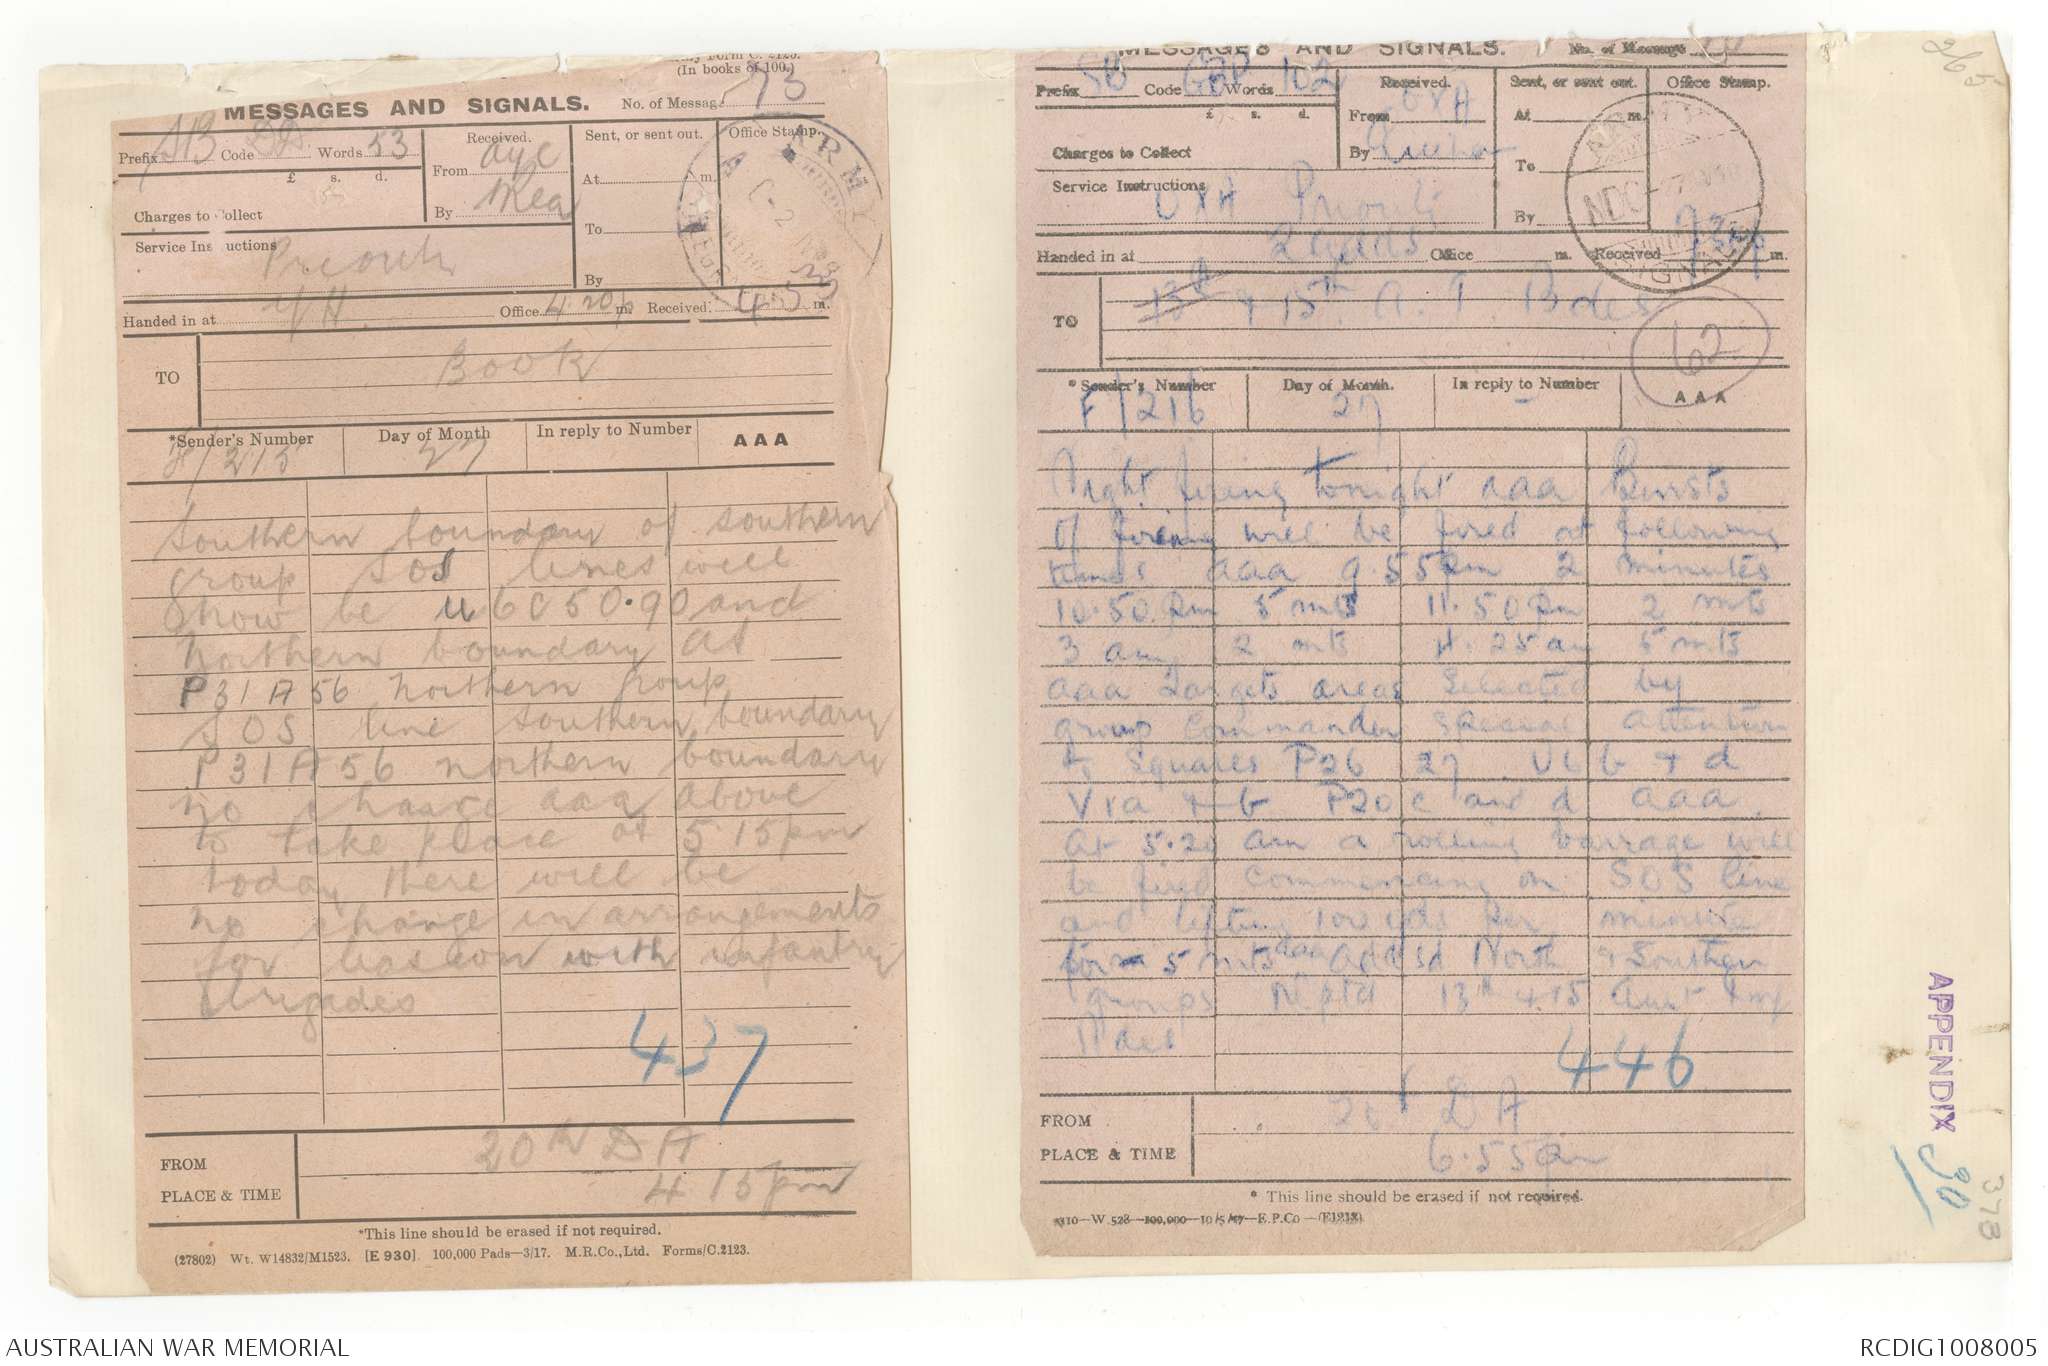 Army Form C. 2123.
(In books of 100.)
MESSAGES AND SIGNALS.
No. of Message 73
Prefix SB Code Words 53
Received.
From ayc
By Rea
Sent, or sent out.
At m.
To
By
Office Stamp.
£ s. d.
Charges to Collect
Service Instructions
Priority
Handed in at Y/H Office 4.20p m. Received 4.53 m.
TO Book
*Sender's Number
Day of Month
In reply to Number
AAA
F/215
27
Southern boundary of southern
group SOS lines will
now be U6C50.90 and
Northern boundary at
P31A56 northern group
SOS line southern boundary
P31A56 northern boundary
no change aaa above
to take place at 5.15pm
today there will be
no change in arrangements
for liaison with infantry
Brigades
437
FROM
PLACE & TIME
20th D A
4 15pm
*This line should be erased if not required.
(27802) Wt. W14832/M1523. [E 930]. 100,000 Pads—3/17. M.R.Co., Ltd. Forms/C.2123.
MESSAGES AND SIGNALS.
No. of Message
Prefix SB Code Words 102
Received.
From YXA
By
Sent, or sent out.
At m.
To
By
Office Stamp.
£ s. d.
Charges to Collect
Service Instructions
YXA Priority
2 adds
Handed in at Office m. Received 7.35p m.
TO 13th & 15th A. F Bdes
62
*Sender's Number
Day of Month.
In reply to Number
AAA
F/216
27
-
Night firing tonight aaa Bursts
of firing will be fired at following
times aaa 9.55pm 2 minutes
10.50pm 5 mts 11.50pm 2 mts
3 am 2 mts 4.25am 5 mts
aaa Targets areas selected by
group commander special attention
to squares P26 27 U6 b + d
V1a + b P20c and d aaa
At 5.20 am a rolling barrage will
be fired commencing on SOS line
and lifting 100 yds per minute
for 5 mts aaa Addsd North & Southern
groups Reptd 13th & 15 Aust
446
FROM
PLACE & TIME
20th D A
6.55pm
* This line should be erased if not required.
W 528—100,000—10/5/17—E.P.Co—(E1213)
265
APPENDIX
90
378
AUSTRALIAN WAR MEMORIAL
RCDIG1008005